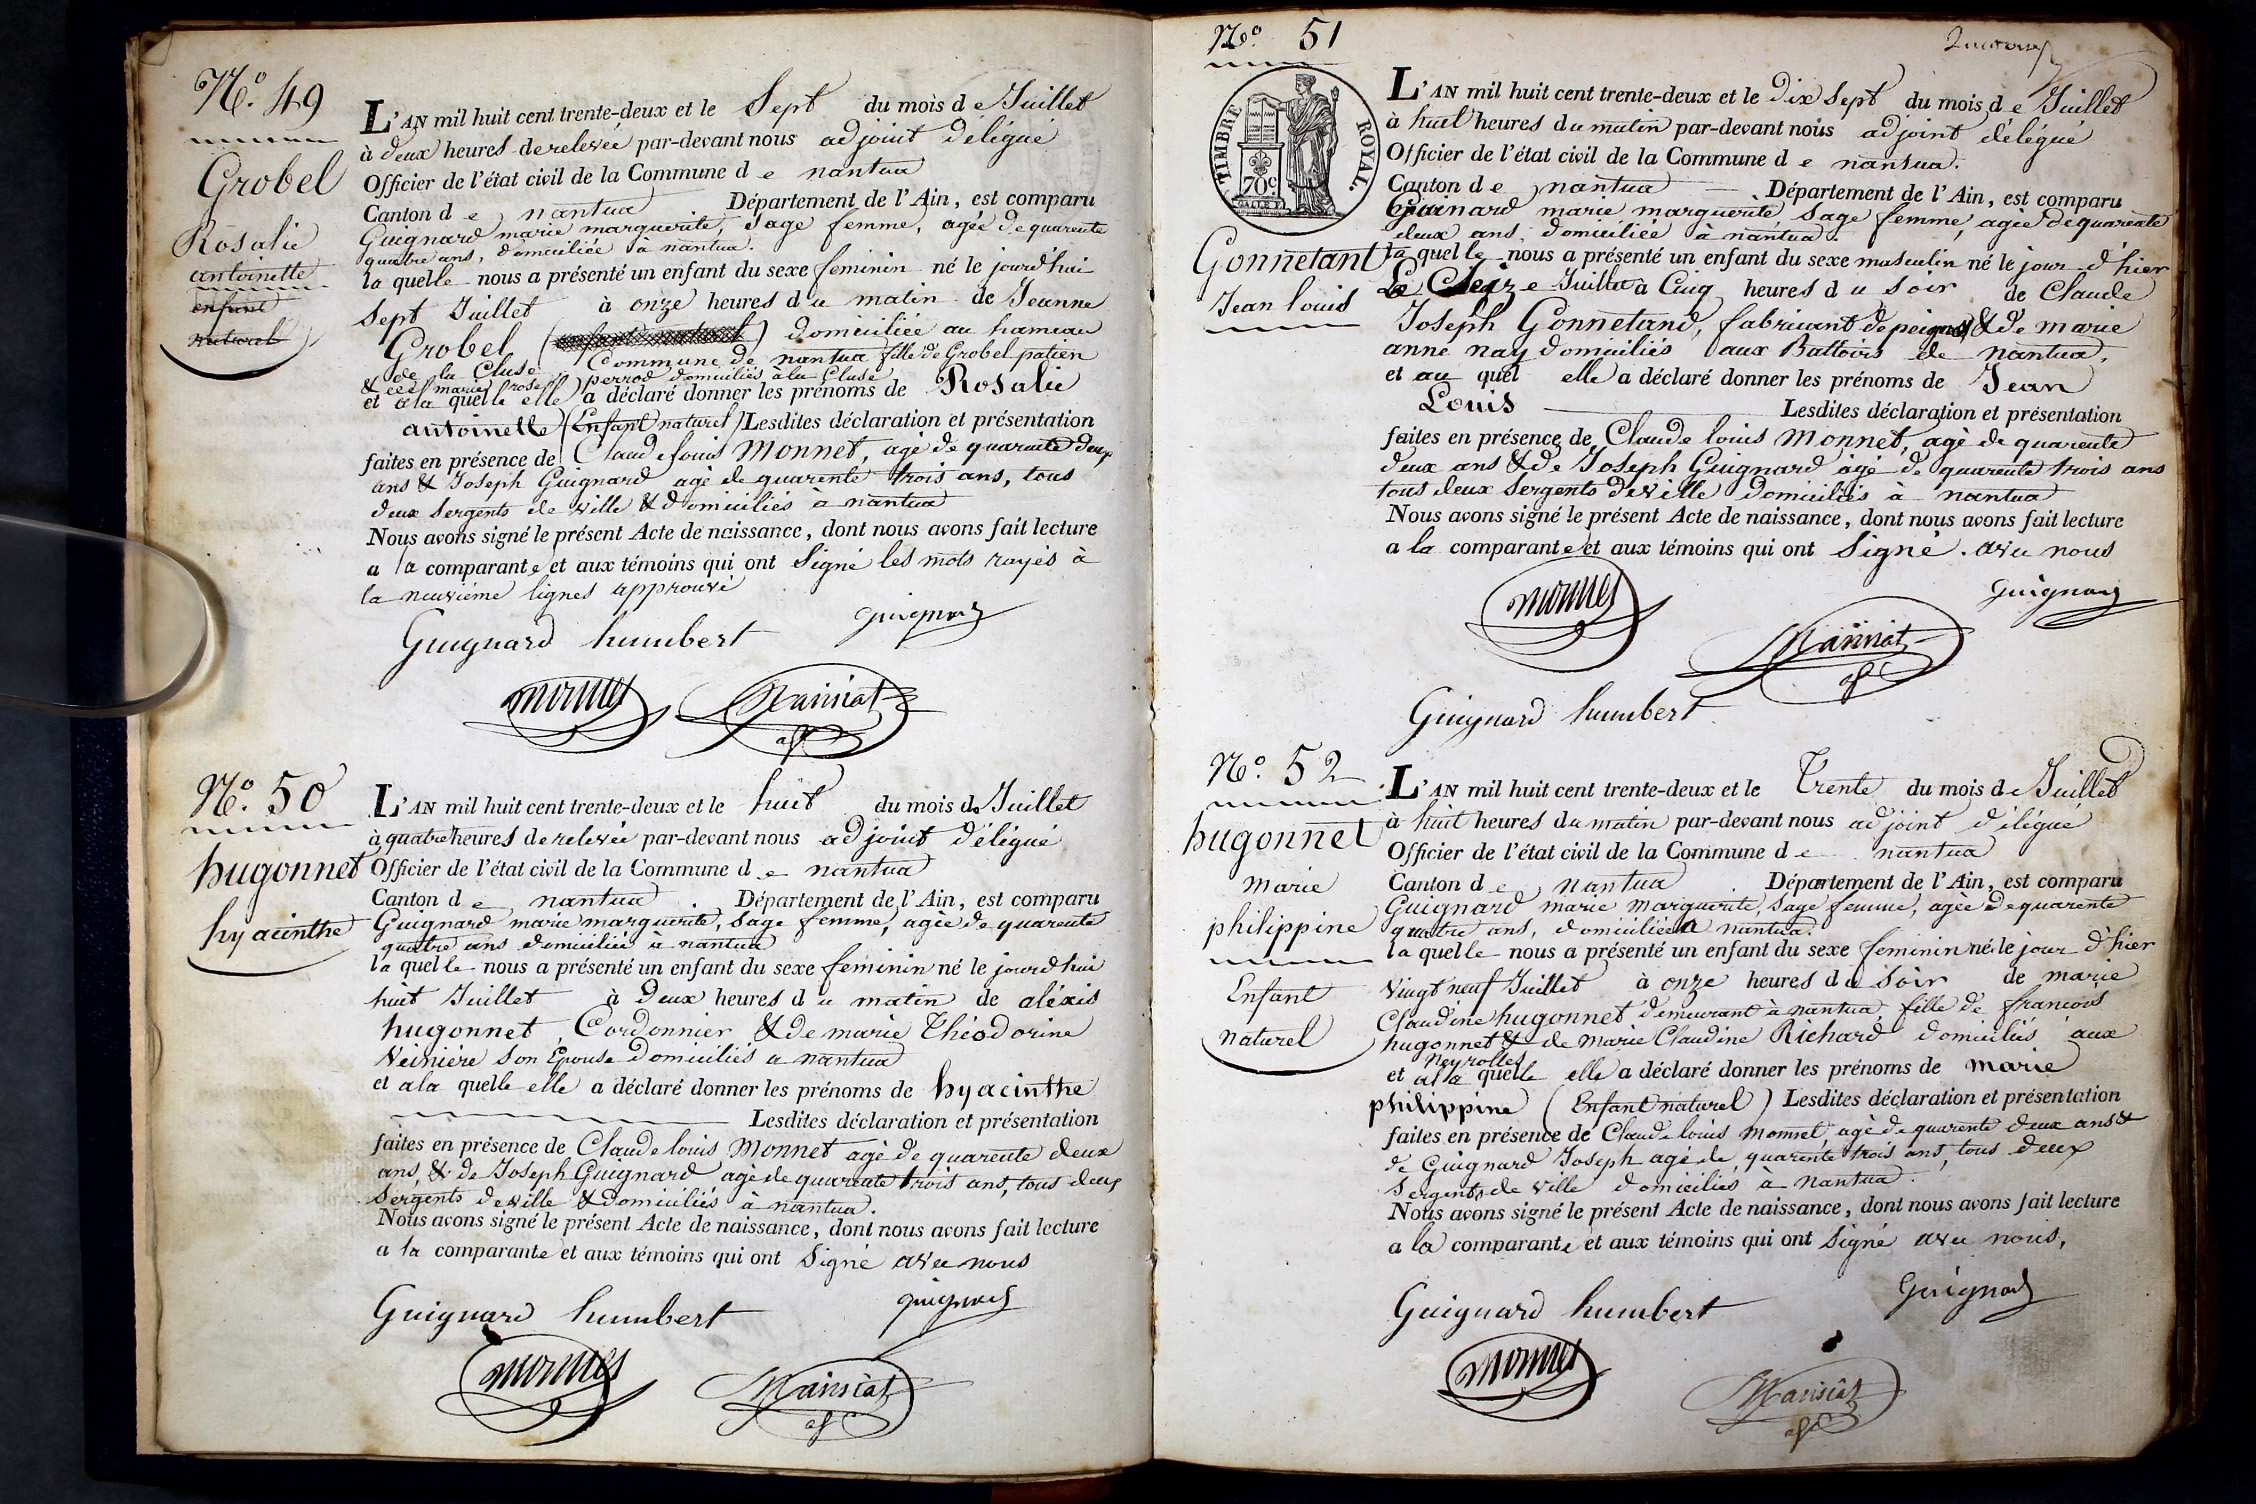 N.° 49
Grobel
Rosalie
antoinette
enfant
naturel
L'AN mil huit cent trente-deux et le Sept du mois de Juillet
à deux heures de relevée par-devant nous adjoint délégué
Officier de l'état civil de la Commune de nantua
Canton de nantua Département de l'Ain, est comparu
Guignard marie marguerite, sage femme, agée de quarente
quatre ans, domiciliée à nantua.
la quelle nous a présenté un enfant du sexe feminin né le jourd'hui
sept Juillet à onze heures du matin de Jeanne
Grobel ( ) domiciliée au hameau
de la Cluse Commune de nantua fille de Grobel
& marie perrod domiciliés à la Cluse
et a la quelle elle a déclaré donner les prénoms de Rosalie
antoinette (Enfant naturel) Lesdites déclaration et présentation
faites en présence de Claude louis Monnet, agé de quarente deux
ans & Joseph Guignard agé de quarente trois ans, tous
deux sergents de ville & domiciliés à nantua
Nous avons signé le présent Acte de naissance, dont nous avons fait lecture
a la comparante et aux témoins qui ont Signé les mots rayés à
la neuvième lignes approuvé
Guignard humbert Guignard
monnet
N.° 50
hugonnet
hyacinthe
L'AN mil huit cent trente-deux et le huit du mois de Juillet
à quatre heures de relevée par-devant nous adjoint délégué
Officier de l'état civil de la Commune de nantua
Canton de nantua. Département de l'Ain, est comparu
Guignard marie marguerite, sage femme, agée de quarente
quatre ans domiciliée à nantua
la quelle nous a présenté un enfant du sexe feminin né le jourd'hui
huit Juillet à deux heures du matin de aléxis
hugonnet, Cordonnier & de marie Théodorine
son Epouse domiciliés a nantua
et a la quelle elle a déclaré donner les prénoms de hyacinthe
Lesdites déclaration et présentation
faites en présence de Claude louis Monnet agé de quarente deux
ans, & de Joseph Guignard agé de quarente trois ans, tous deux
Sergents de ville & domiciliés à nantua.
Nous avons signé le présent Acte de naissance, dont nous avons fait lecture
a la comparante et aux témoins qui ont Signé avec nous
Guignard humbert Guignard
monnet
N.° 51
TIMBRE ROYAL.
70c
Gonnetant
Jean louis
L'AN mil huit cent trente-deux et le Dix Sept du mois de Juillet
à huit heures du matin par-devant nous adjoint délégué
Officier de l'état civil de la Commune de nantua.
Canton de nantua Département de l'Ain, est comparu
Guinard marie marguerite, Sage femme, agée de quarente
deux ans, domiciliée à nantua.
la quelle nous a présenté un enfant du sexe masculin né le jour d'hier
Le Seize Juillet à Cinq heures du soir de Claude
Joseph Gonnetand, fabricant de peignes & de marie
anne nay domiciliés aux Battoirs de nantua,
et au quel elle a déclaré donner les prénoms de Jean
Louis Lesdites déclaration et présentation
faites en présence de Claude louis Monnet, agé de quarente
deux ans & de Joseph Guignard agé de quarente trois ans
tous deux Sergents de ville domiciliés à nantua
Nous avons signé le présent Acte de naissance, dont nous avons fait lecture
a la comparante et aux témoins qui ont Signé. avec nous
monnet Guignard
Guignard humbert
N.° 52
hugonnet
marie
philippine
Enfant
naturel
L'AN mil huit cent trente-deux et le Trente du mois de Juillet
à huit heures du matin par-devant nous adjoint délégué
Officier de l'état civil de la Commune de nantua
Canton de nantua. Département de l'Ain, est comparu
Guignard marie marguerite, Sage femme, agée de quarente
quatre ans, domiciliée a nantua.
la quelle nous a présenté un enfant du sexe feminin né le jour d'hier
vingt neuf Juillet à onze heures du soir de marie
Claudine hugonnet demeurant à nantua, fille de francois
hugonnet & de Marie Claudine Richard domiciliés aux
neyrolles
et a la quelle elle a déclaré donner les prénoms de marie
philippine (Enfant naturel) Lesdites déclaration et présentation
faites en présence de Claude louis Monnet, agé de quarente deux ans &
de Guignard Joseph agé de quarente trois ans, tous deux
Sergents de ville domiciliés à Nantua.
Nous avons signé le présent Acte de naissance, dont nous avons fait lecture
a la comparante et aux témoins qui ont Signé avec nous,
Guignard humbert Guignard
monnet